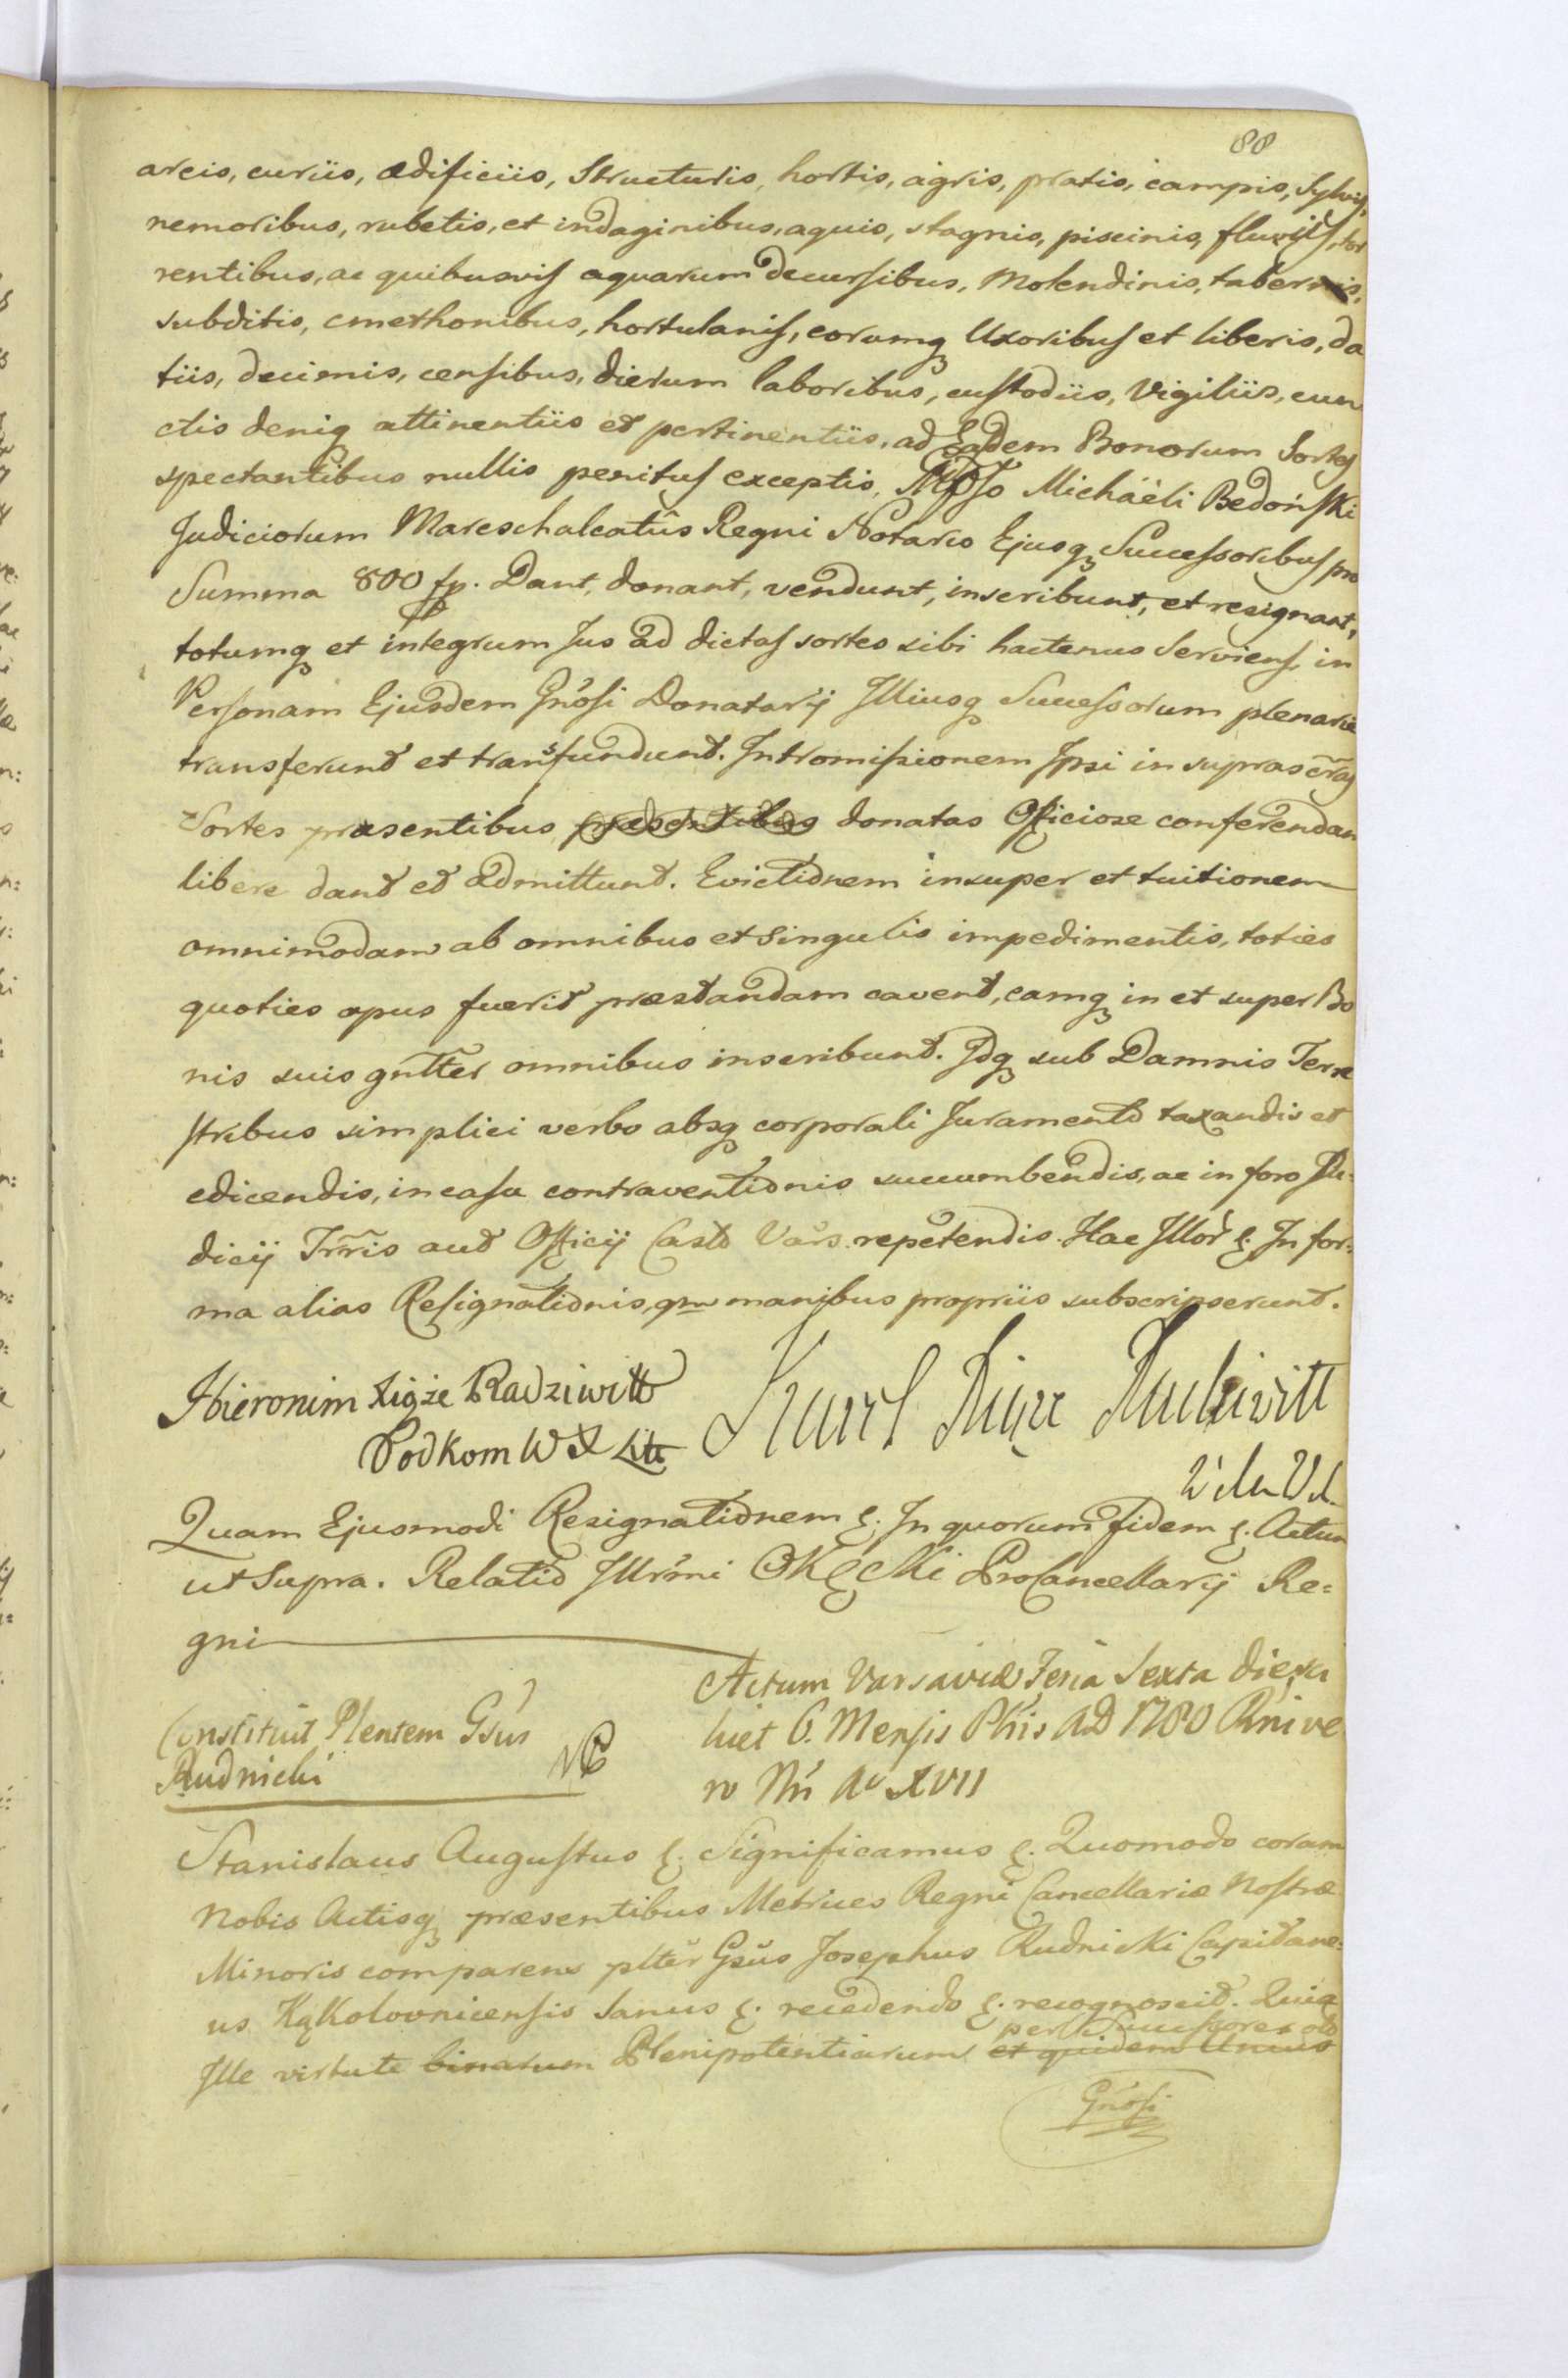 88
arcis, curiis, ædificiis, Structuris, hortis, agris, pratis, campis, Sylvis,
nemoribus, rubetis, et indaginibus, aquis, stagnis, piscinis, fluvijs, tor
rentibus, ac quibusvis aquarum decursibus, Molendinis, tabernis,
subditis, cmethonibus, hortulanis, eorumq Uxoribus et liberis, da
tiis, decimis, censibus, dierum laboribus, custodiis, Vigiliis, cun
ctis deniq attinentiis et pertinentiis, ad Easdem Bonorum Sortes
spectantibus nullis penitus exceptis, Michäeli Bedoński
Judiciorum Mareschalcatûs Regni Notario Ejusq Successoribus pro
Summa 800 fp. Dant, donant, vendunt, inscribunt, et resignant,
totumq et integrum Jus ad dictas sortes sibi hactenus Serviens, in
Personam Ejusdem Gnosi Donatarij Illiusq Successorum plenarie
transferunt et transfundunt. Intromissionem Ipsi in suprascras
Sortes præsentibus præsentibus donatas Officiose conferendam
libere dant et admittunt. Evictionem insuper et tuitionem
omnimodam ab omnibus et Singulis impedimentis, toties
quoties opus fuerit præstandam cavent, eamq in et super Bo
nis suis gnrtter omnibus inscribunt. Idq sub Damnis Terre
stribus simplici verbo absq corporali Juramento taxandis et
edicendis, in casu contraventionis succumbendis, ac in foro Ju=
dicij Trris aut Officij Cast Vars. repetendis. Hac Illor &. In for=
ma alias Resignationis, qm manibus propriis subscripserunt.
Hieronim Xiąże Radziwiłł
Podkom W X Litt
Karol Xiąże Radziwiłł
Quam Ejusmodi Resignationem &. In quorum fidem &. Actum
ut Supra. Relatio Illrmi Okęcki ProCancellarij Re=
gni
Constituit Plentem Gsus
Rudnicki
Actum Varsaviæ Feria Sexta die
6. Mensis Xbris AD 1780 Rni ve
ro Nri Ao XVII
Stanislaus Augustus &. Significamus &. Quomodo coram
Nobis Actisq præsentibus Metrices Regni Cancellariæ Nostræ
Minoris comparens pltter Gsus Josephus Rudnicki Capitane=
us Kąkolovnicensis Sanus &. recedendo &. recognoscit. Quia
per Successores olo
Ille virtute binarum Plenipotentiarum et quidem Unius
Gnosi